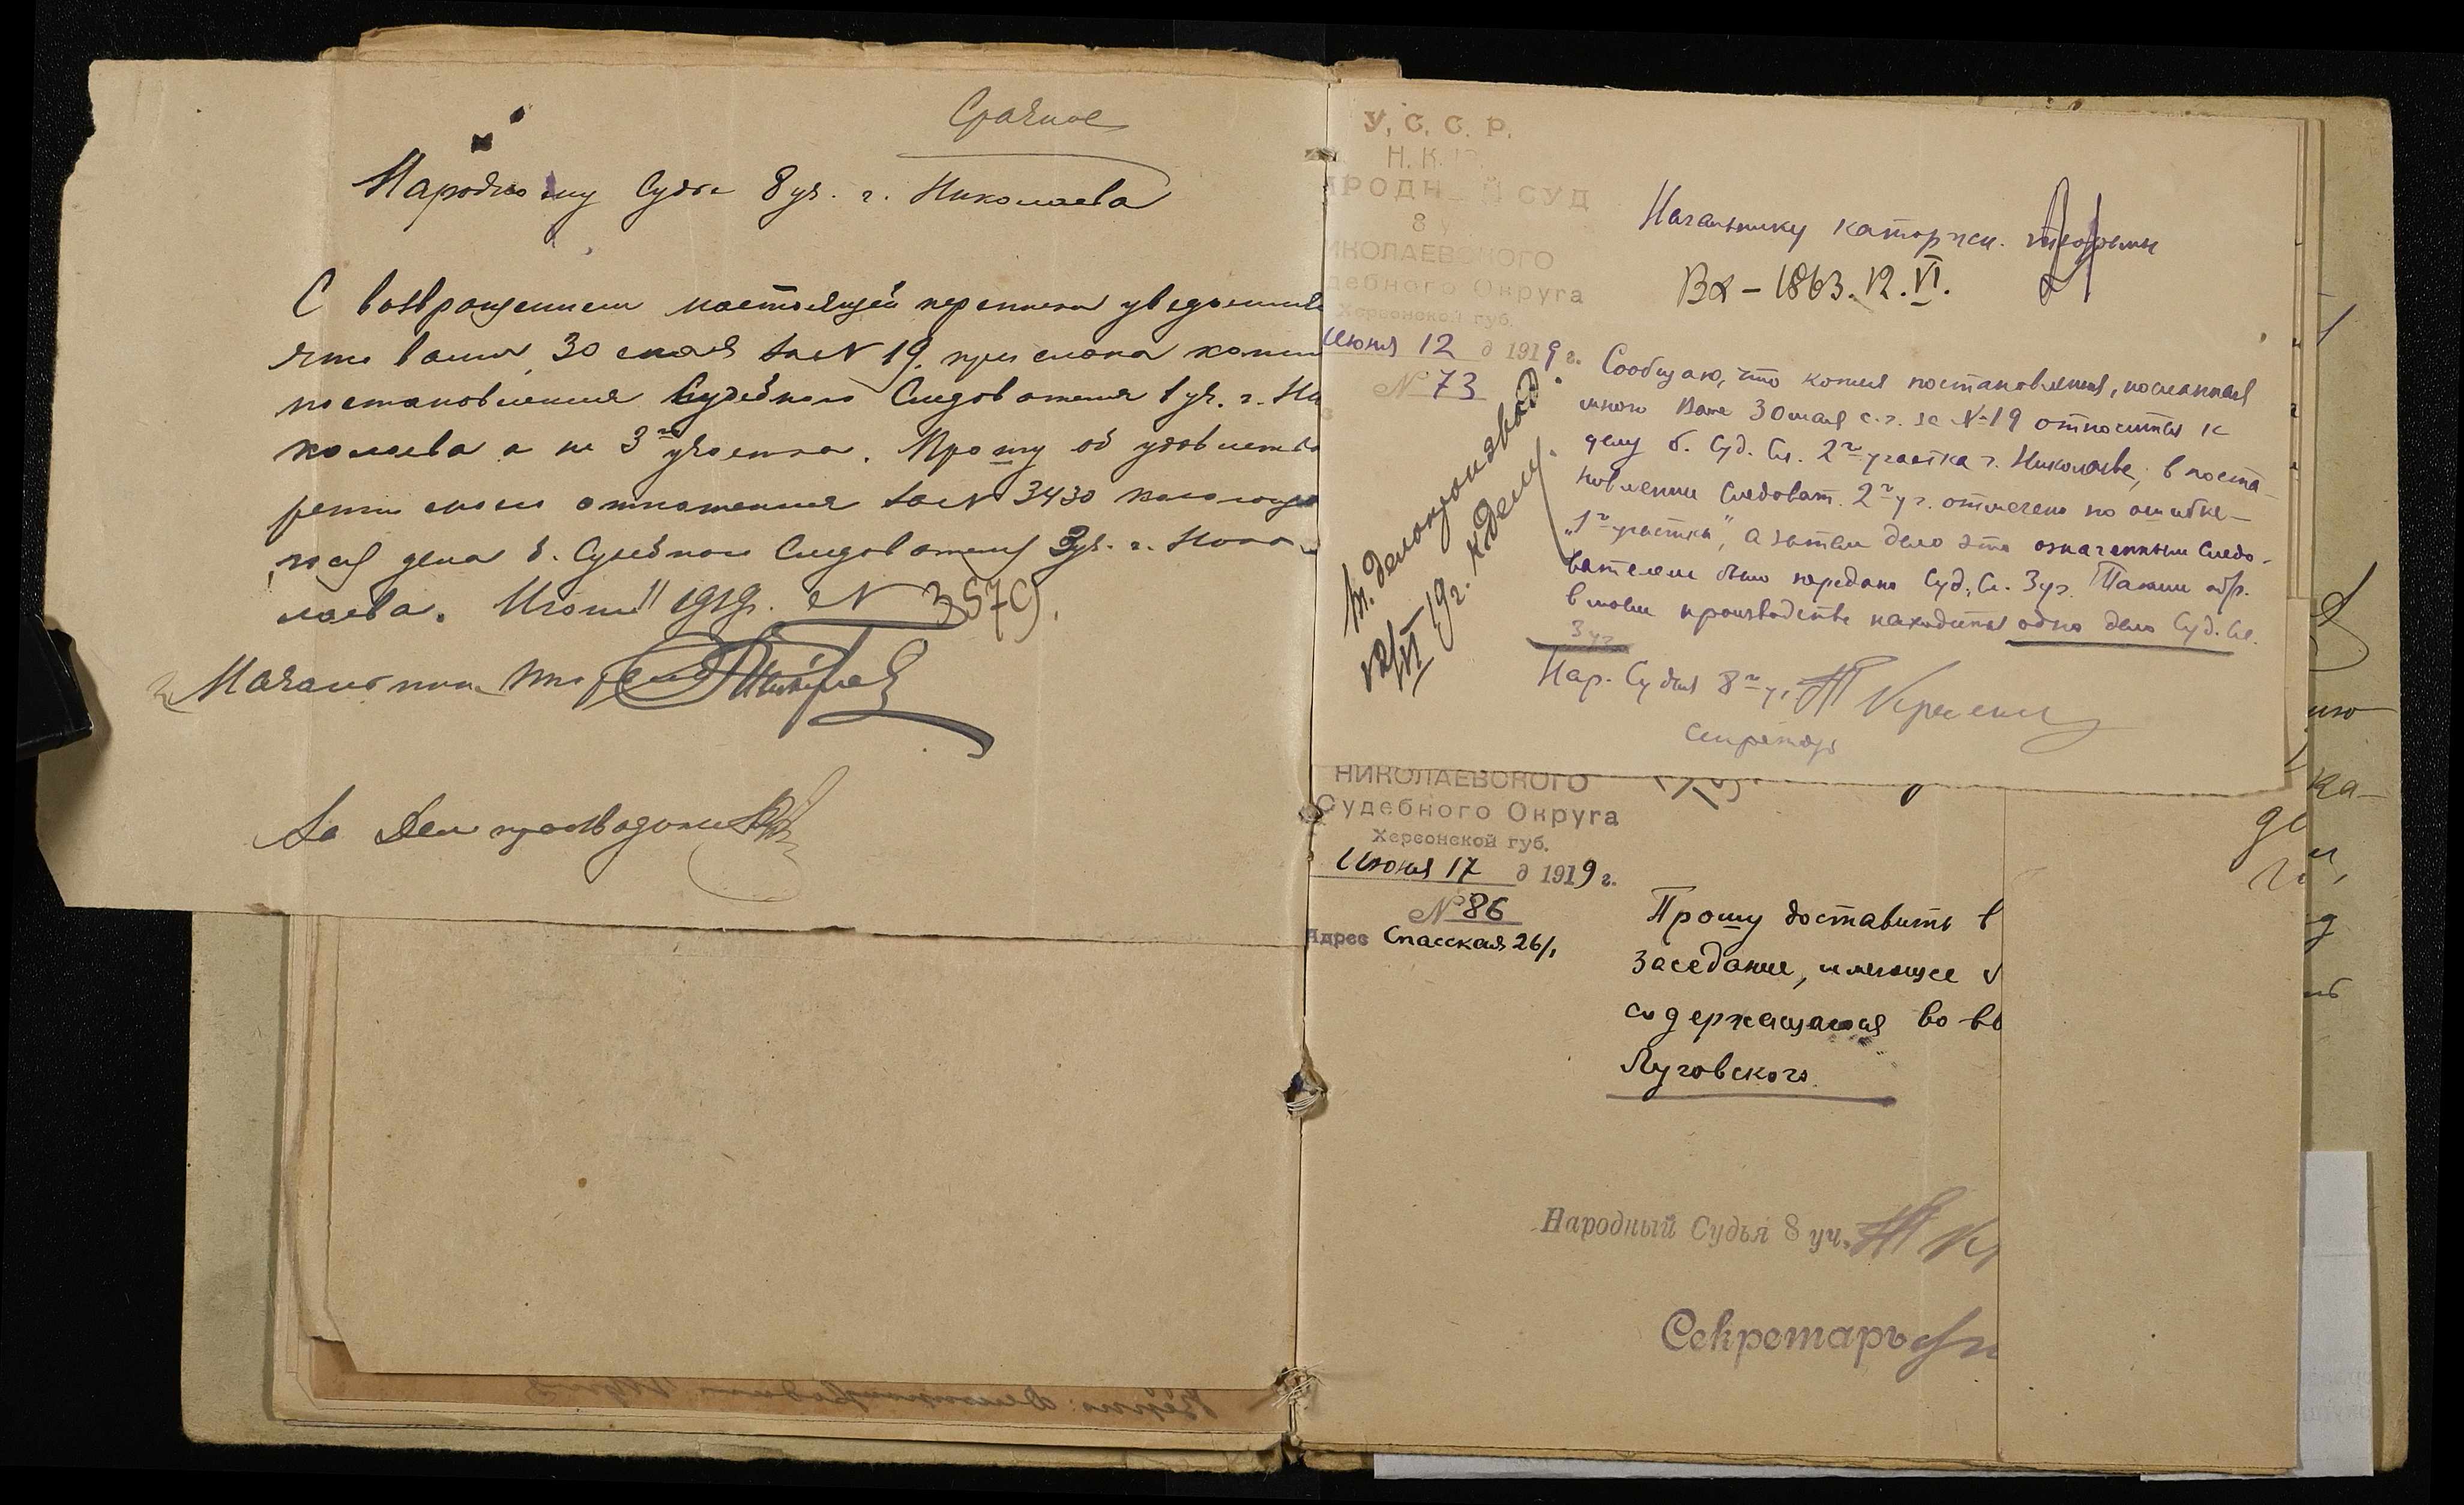 Срочное
Народному Судье 8 уч. г. Николаева
С возвращением настоящей переписки уведомляю
что вами 30 мая за № 19 прислана копия
постановления Судебного Следователя 1 уч. г. Ни
колаева а не 3го участка. Прошу об удовлетво
рении моего отношения за № 3430
дела б. Судебного Следователя 3 уч. г. Нико-
лаева. Июня 11 1919г. № 3579.
Начальник
За Делопроизводителя
У. С. С. Р.
Н. К. Ю.
АРОДНЫЙ СУД
8 у
ИКОЛАЕВСКОГО
дебного Округа
Херсонской губ.
Июня 12 д 1919 г.
№ 73
Начальнику каторжн. тюрьмы
Вх – 1863. 12. VI.
Сообщаю, что копия постановления, посланная
мною Вам 30 мая с.г. за № 19 относится к
делу б. Суд. Сл. 2го участка г. Николаева; в поста-
новлении Следоват. 2го уч. отмечено по ошибке –
„1го участка", а затем дело это означенным Следо-
вателем было передано Суд. Сл. 3 уч. Таким обр.
в моем производстве находится одно дело Суд. Сл.
3 уч.
Нар. Судья 8го у.
Секретарь
т. делопроизвод.
12/VI 19 г. к делу.
НИКОЛАЕВСКОГО
Судебного Округа
Херсонской губ.
Июня 17 д 1919 г.
№ 86
Адрес Спасская 26/1
Прошу доставить в
заседание, имеющее
содержащагося во
Луговского
Народный Судья 8 уч.
Секретарь